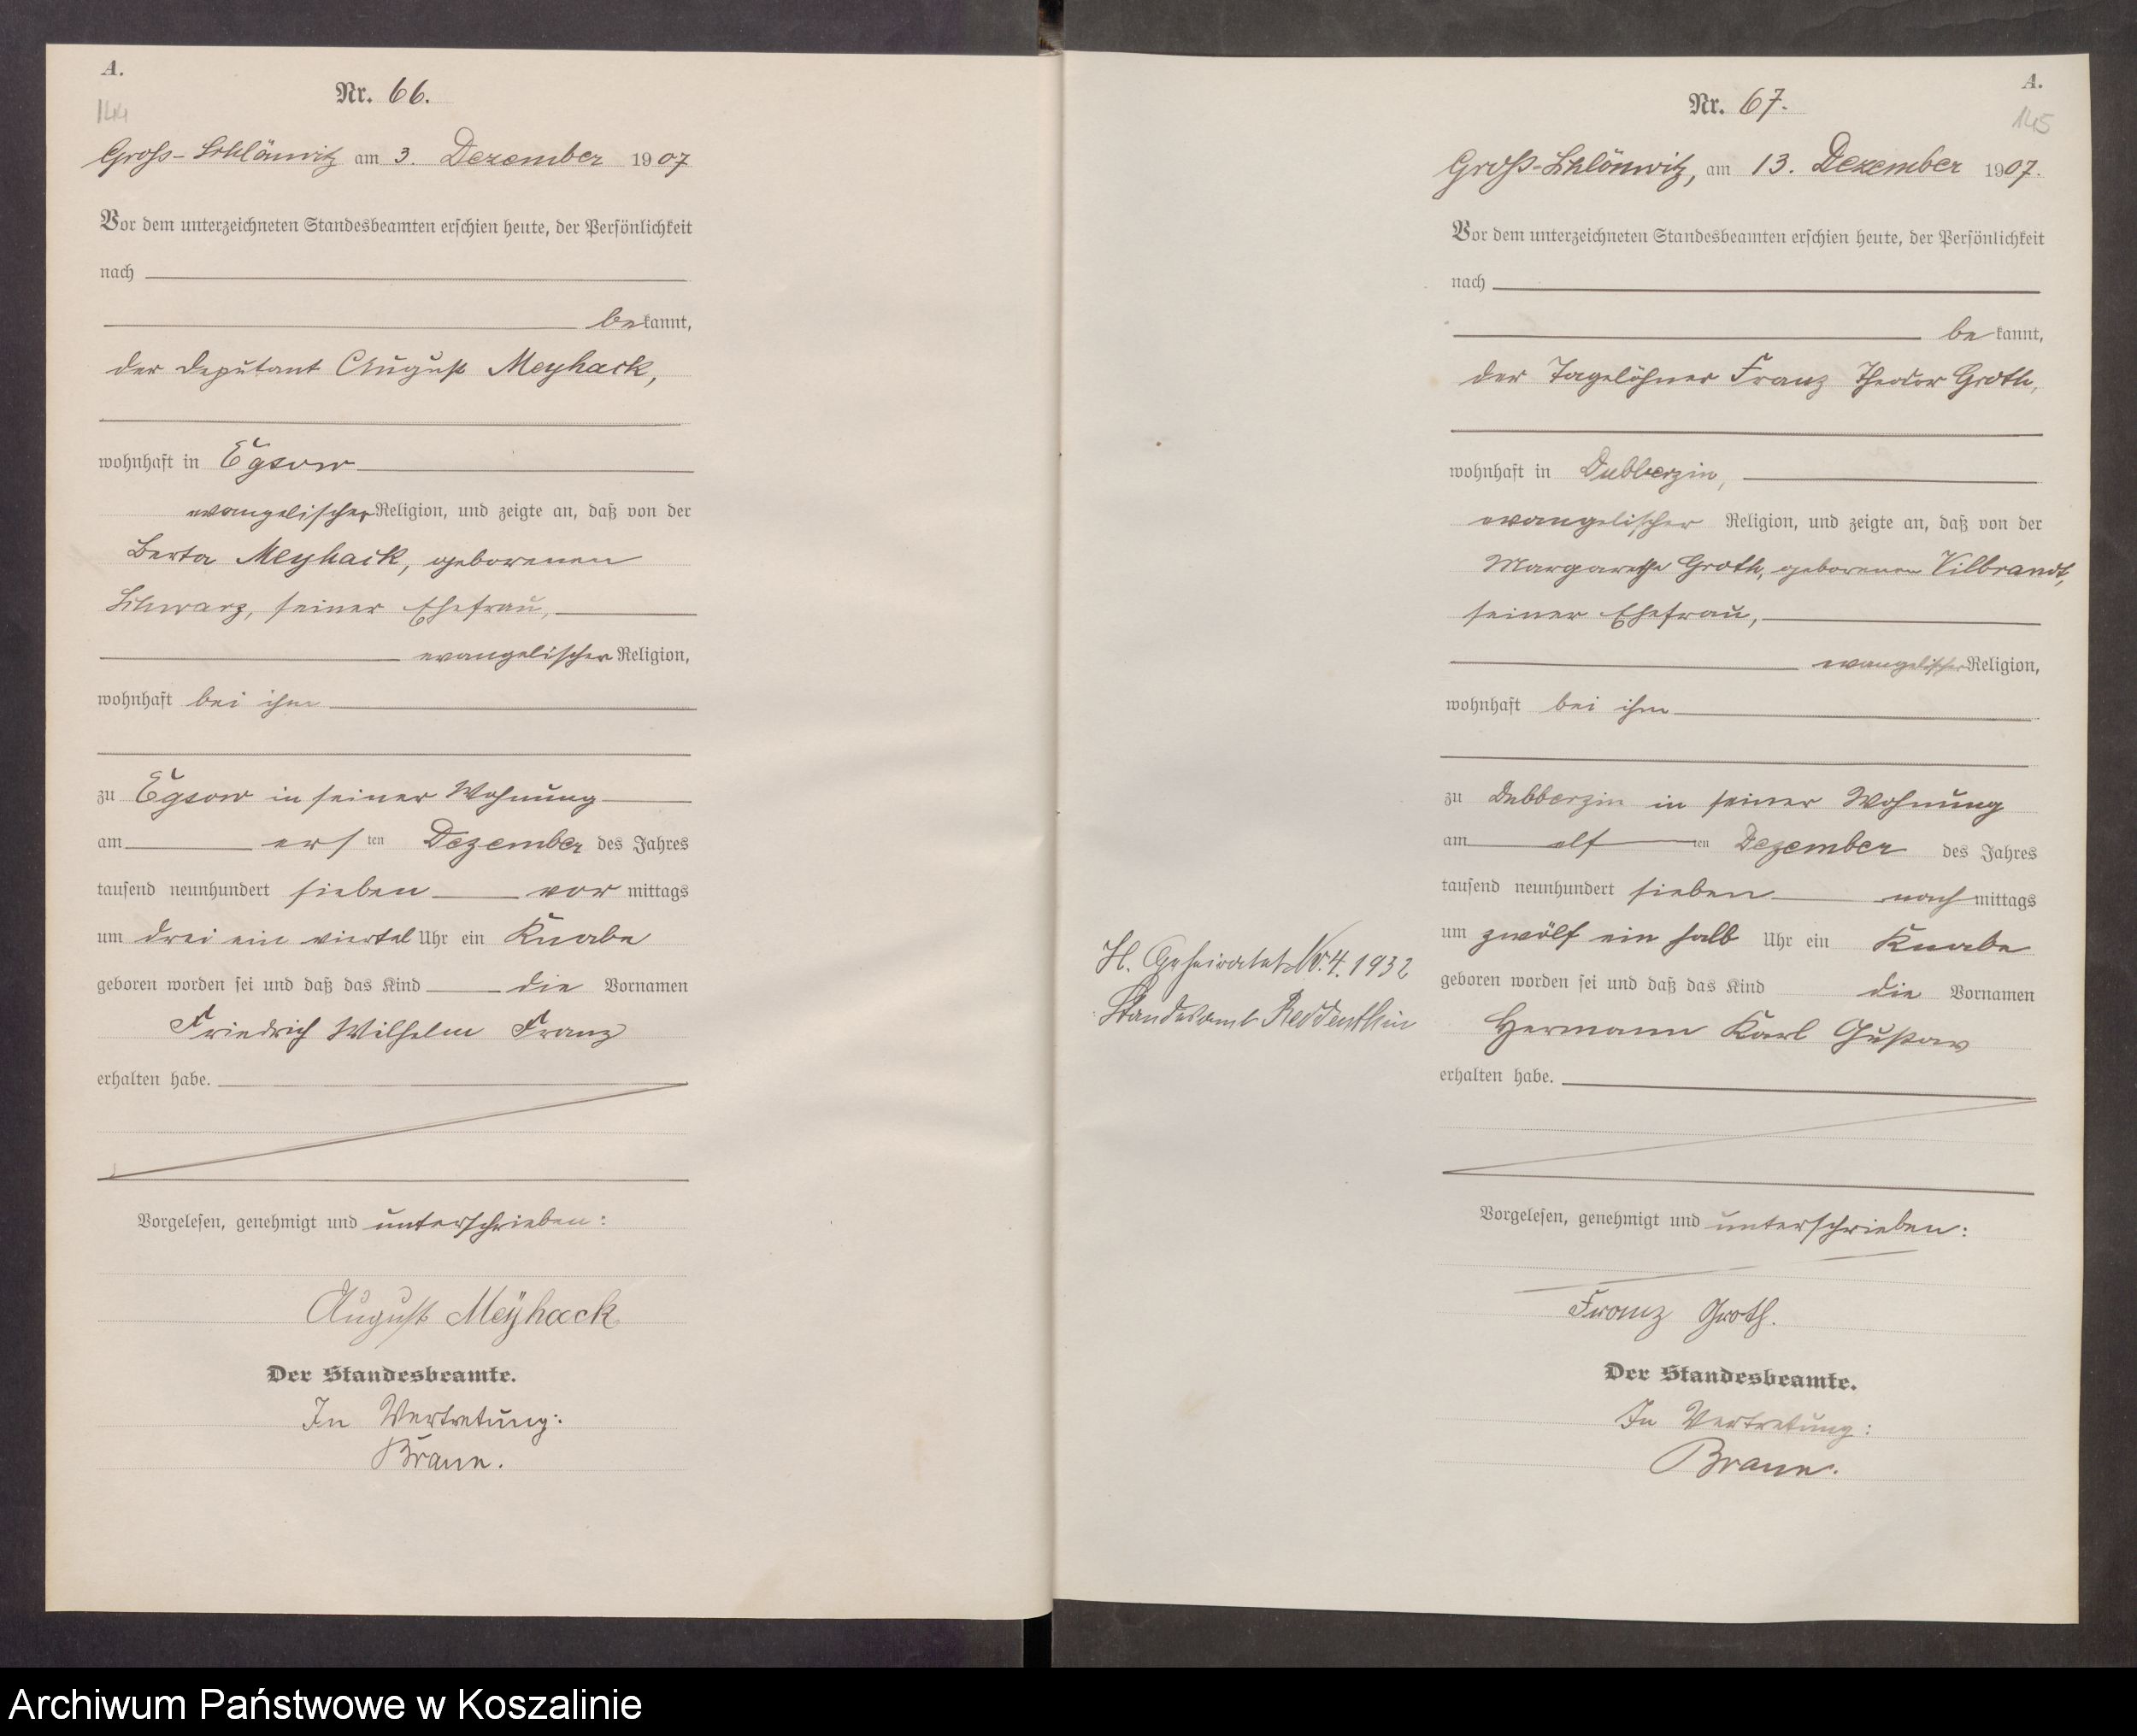 A.
144
Nr. 66.
Gross-Schlönwitz am 3. Dezember 1907
Vor dem unterzeichneten Standesbeamten erschien heute, der Persönlichkeit
nach
bekannt,
der Deputant August Meyhack,
wohnhaft in Egsow
evangelischer Religion, und zeigte an, daß von der
Berta Meyhack, geborenen
Schwarz, seiner Ehefrau,
evangelischer Religion,
wohnhaft bei ihm
zu Egsow in seiner Wohnung
am ersten Dezember des Jahres
tausend neunhundert sieben vormittags
um drei ein viertel Uhr ein Knabe
geboren worden sei und daß das Kind die Vornamen
Friedrich Wilhelm Franz
erhalten habe.
Vorgelesen, genehmigt und unterschrieben:
August Meyhack
Der Standesbeamte.
In Vertretung:
Braun.
A.
145
Nr. 67.
Groß-Schlönwitz, am 13. Dezember 1907.
Vor dem unterzeichneten Standesbeamten erschien heute, der Persönlichkeit
nach
bekannt,
der Tagelöhner Franz Theodor Groth,
wohnhaft in Dubberzin,
evangelischer Religion, und zeigte an, daß von der
Margarethe Groth, geborenen Vilbrandt,
seiner Ehefrau,
evangelischer Religion,
wohnhaft bei ihm
zu Dubberzin in seiner Wohnung
am elften Dezember des Jahres
tausend neunhundert sieben nachmittags
um zwölf ein halb Uhr ein Knabe
geboren worden sei und daß das Kind die Vornamen
Hermann Karl Gustav
erhalten habe.
H. Geheiratet Nr. 4. 1932
Standesamt Reddenthin
Vorgelesen, genehmigt und unterschrieben:
Franz Groth.
Der Standesbeamte.
In Vertretung:
Braun.
Archiwum Państwowe w Koszalinie